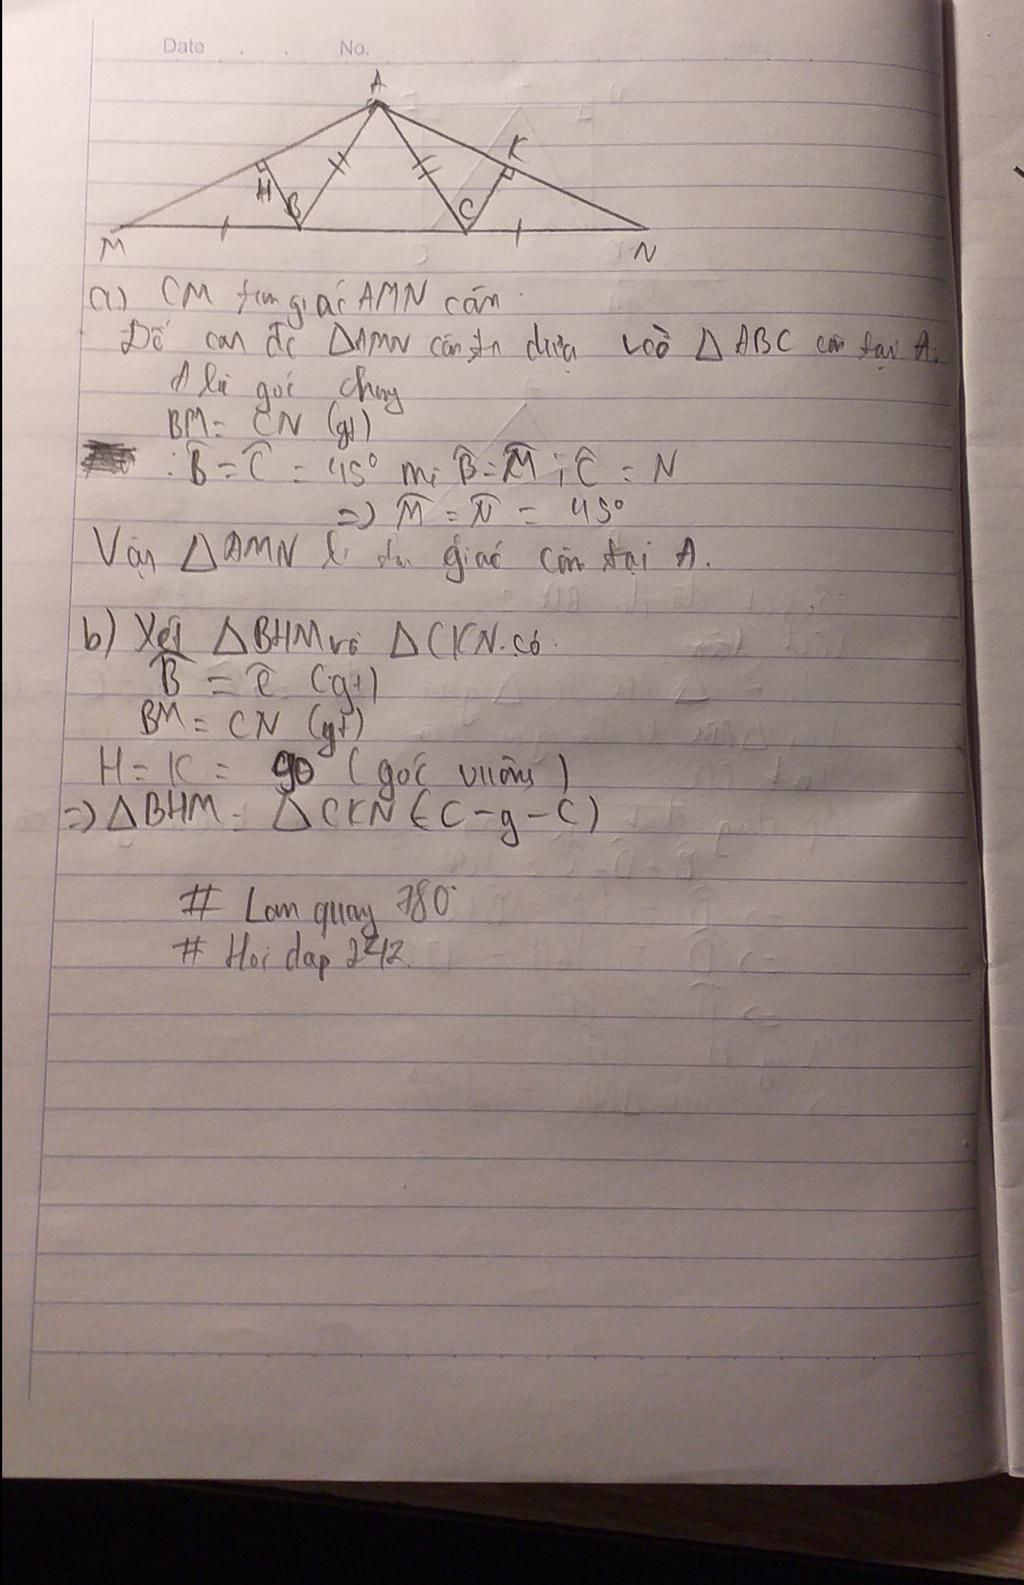 Date . . No.
A
K
H
B
C
M
N
a) CM tam giác AMN cân:
Để can đc △AMN cân ta dựa vào △ABC cân tại A.
A là góc chung
BM = CN (gt)
: B̂ = Ĉ = 45° mà B̂ = M̂ ; Ĉ = N
=> M̂ = N̂ = 45°
Vậy △AMN là tam giác cân tại A.
b) Xét △BHM và △CKN có:
B̂ = Ĉ (gt)
BM = CN (gt)
H = K = 90 (góc vuông)
=> △BHM = △CKN (C-g-C)
# Lam quay 780
# Hoi dap 247